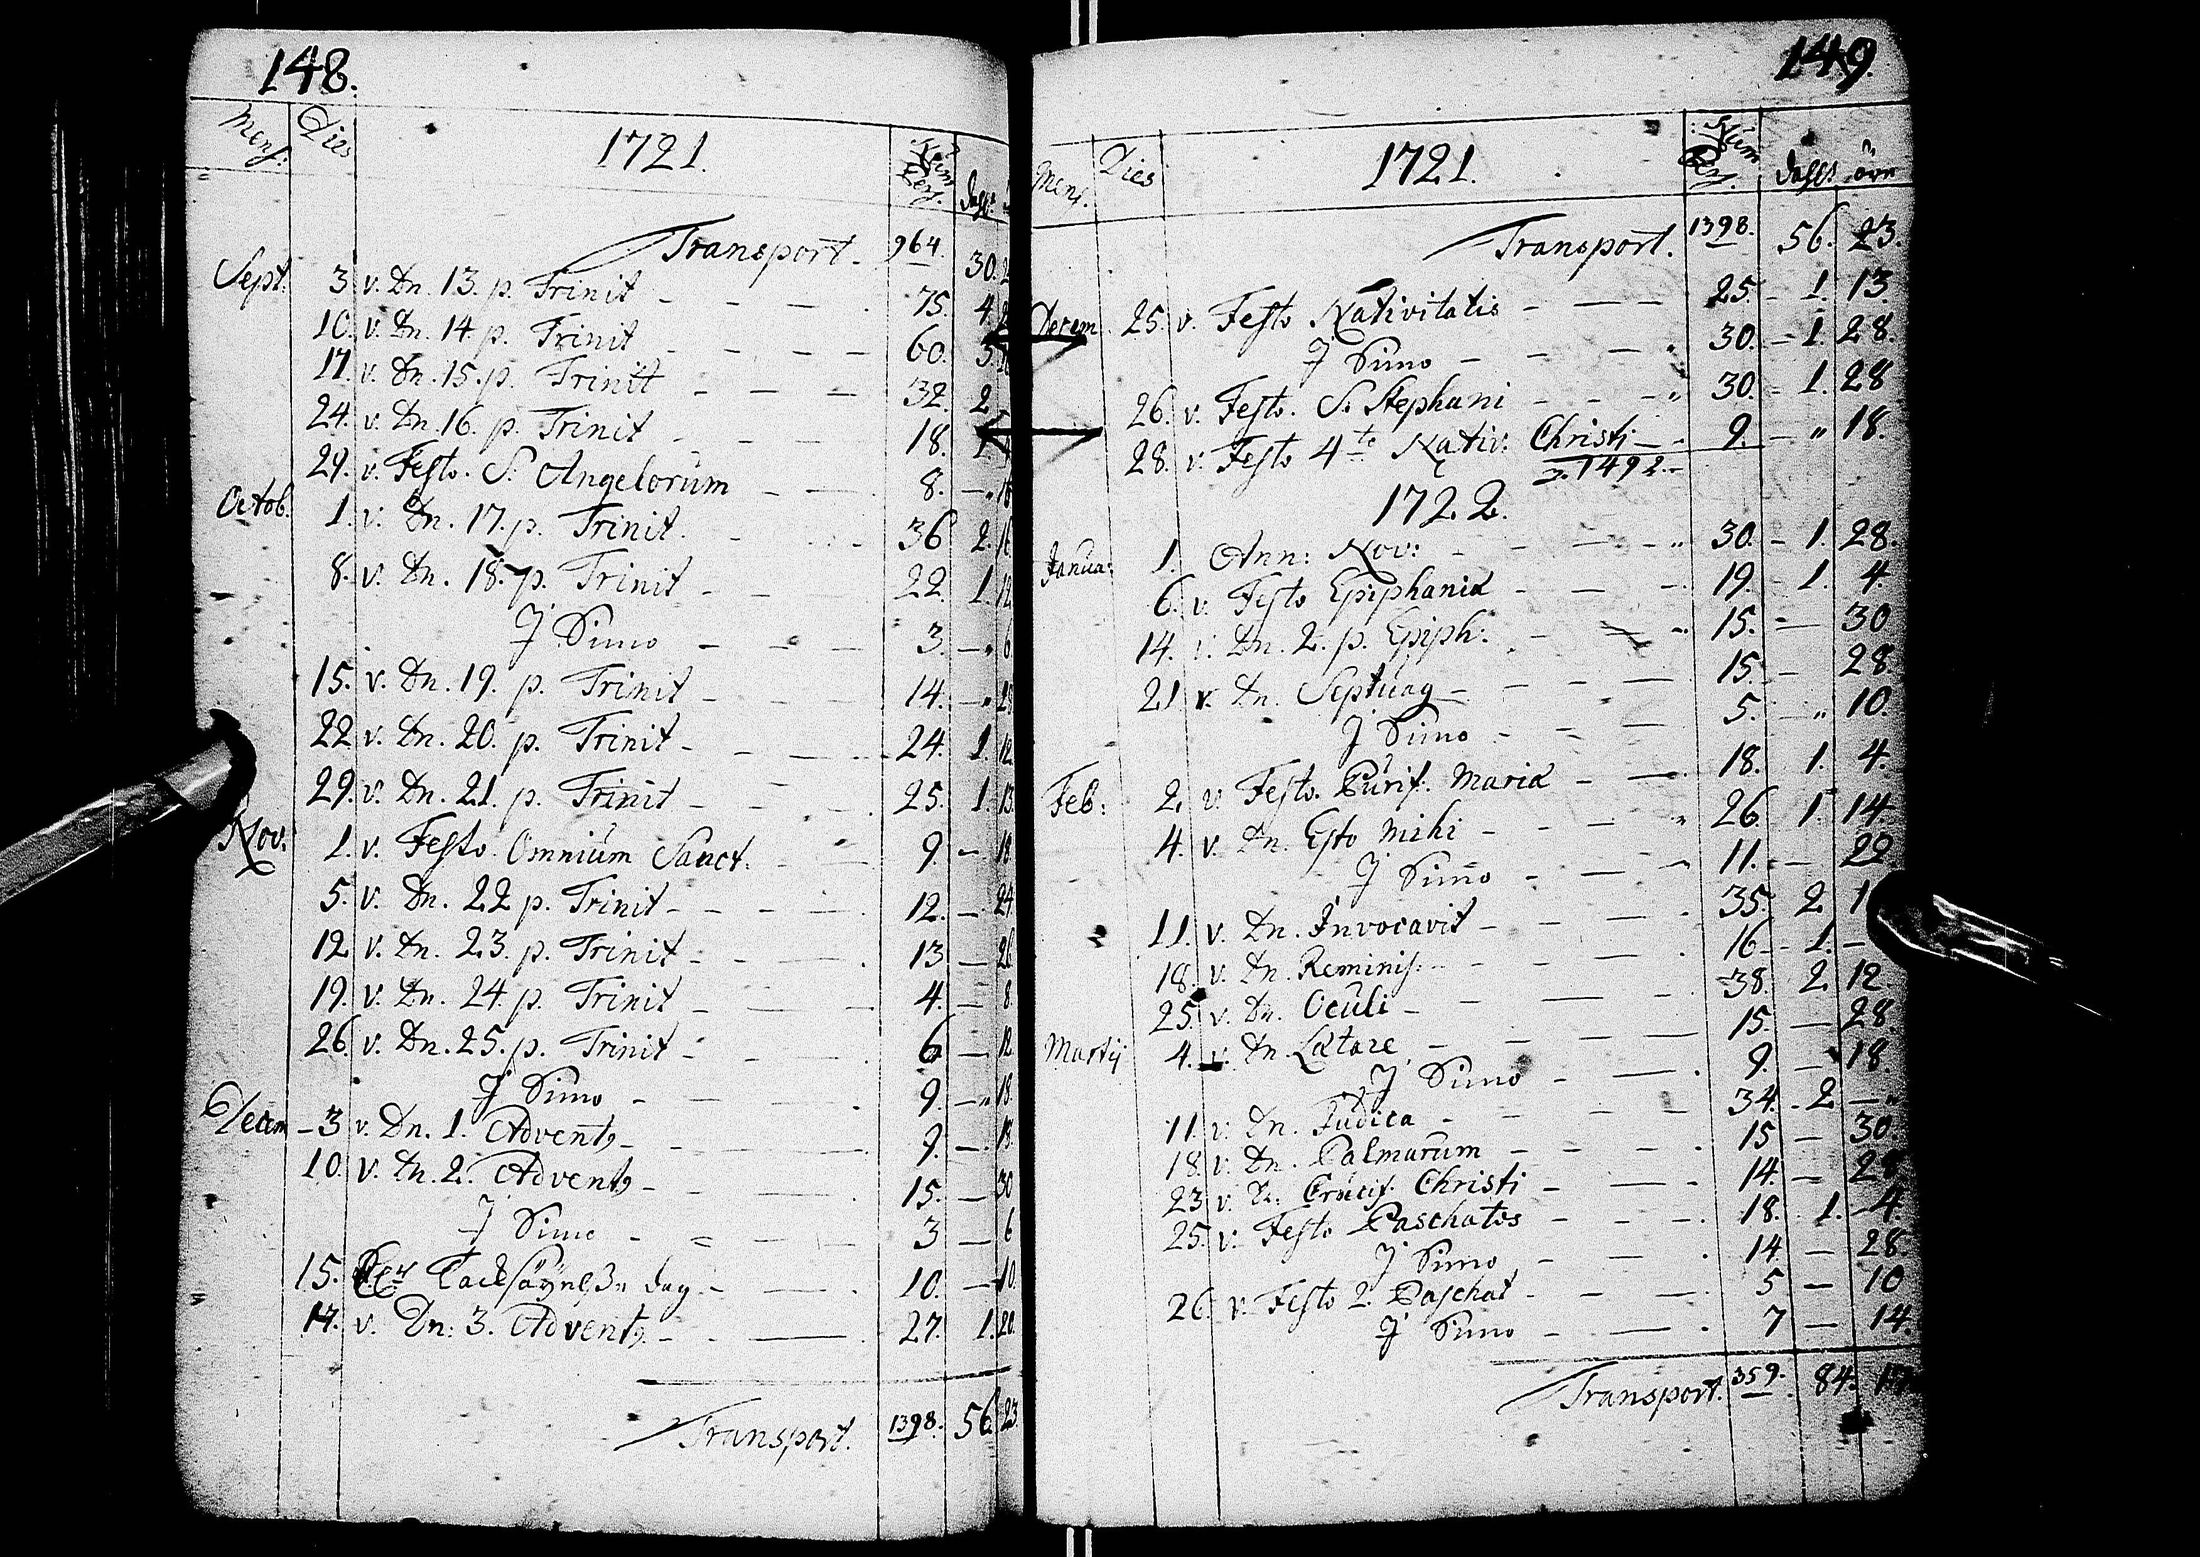 148.
Mens: Dies 1721. Num Pers. dahlr
Transport. 964. 30.
Sept. 3 v. Dn. 13. p. Trinit - - - 75. 4.
10. v. Dn. 14. p. Trinit - - - - 60. 3.
17. v. Dn. 15. p. Trinit - - - 32. 2
24. v. Dn. 16. p. Trinit - - - 18. 1
29. v. Festo. S. Angelorum - - 8. - " 16
Octob. 1. v. Dn. 17. p. Trinit. - - - 36 2. 16
8. v. Dn. 18. p. Trinit - - - 22. 1. 12
J Simo - - - 3. - " 6
15. v. Dn. 19. p. Trinit - - - 14. - " 28
22 v. Dn. 20. p. Trinit - - - 24. 1. 12
29. v. Dn. 21. p. Trinit - - - 25. 1. 13
Nov: 1. v. Festo Omnium Sanct. - - 9. - 18
5. v. Dn. 22 p. Trinit - - - - 12. - 24
12 v. Dn. 23. p. Trinit - - - 13 - 26
19. v. Dn. 24. p. Trinit - - - 4. - 8
26. v. Dn. 25. p. Trinit - - - 6 - 12
J Simo - - - 9. - " 18.
Decem - 3 v. Dn. 1. Advent9 - - - 9. - 18
10. v. Dn. 2. Advent9 - - - 15. - 30
J Simo - - - 3 - 6
15. Tacksäyels dag - - 10. - 10.
17. v. Dn: 3. Advent9 - - - 27. 1. 20.
Transport. 1398. 56. 23
149.
Mens. Dies 1721. Num Pers. dahlr öre
Transport. 1398. 56. 23.
Decem. 25. v. Festo Nativitatis - - - 25 - 1. 13.
J Simo - - - 30. - 1. 28.
26. v. Festo. S. Stephani - - - 30. - 1. 28
28. v. Festo 4te Nativ: Christi - - 9. - " 18.
1492.
1722.
Janua: 1. Ann: Nov: - - - 30. - 1. 28.
6. v. Festo Epiphaniæ - - - 19. 1. 4.
14. v. Dn. 2. p. Epiph: - - - 15. - 30
21 v. Dn. Septuag - - - - 15. - 28
J Simo - - - 5. - " 10.
Feb: 2. v. Festo. Purif. Mariæ - - 18. 1. 4.
4. v. Dn. Esto mihi - - - 26. 1. 14.
J Simo - - - 11. - 22
11. v. Dn. Invocavit - - - 35. 2. 1
18. v. Dn. Reminis. - - - 16 - 1. -
25. v. Dn. Oculi - - - 38. 2. 12.
Martij 4. v. Dn. Lætare - - - 15. - 28.
J Simo - - - 9. - 18.
11. v. Dn. Judica - - - 34. 2 - "
18. v. Dn. Palmarum - - - 15 - 30.
23 v. Crucif. Christi - - 14. - 28
25. v. Festo Paschatos - - - 18. 1. 4.
J Simo - - - 14 - 28.
26. v. Festo 2. Paschat - - - 5 - 10
J Simo - - - 7 - 14.
Transport. 359. 84.